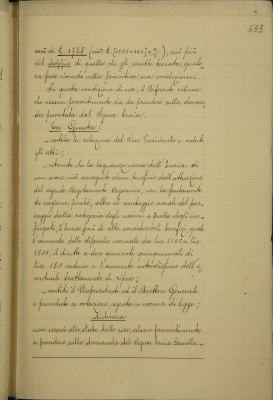 693
sarà di L. 1728 (cioè L.
del doppio di quella che gli sarebbe toccata, qualo-
ra fosse rimasto nella primitiva sua condizione.
In queste condizioni di cose, il Referente ritiene
che nessun provvedimento sia da prendere sulla doman-
da presentata dal Signor Ernia.
Ciò Giunta:
- sentita la relazione del Vice Presidente e veduti
gli atti;
- ritenuto che la lagnanza mossa dall'Ernia, di
non avere cioè conseguito alcun beneficio dall'attuazione
del vigente Regolamento Organico, non ha fondamento
di ragione, perchè, oltre al vantaggio morale del pas-
saggio dalla categoria degli uscieri a quella degli im-
piegati, l'Ernia fruì di altri considerevoli benefici, quali
l'aumento dello stipendio normale da lire 1500 a lire
1800, il diritto a due aumenti quinquennali di
lire 180 caduno e l'aumento indirettissimo dell'e-
ventuale trattamento di riposo;
- sentiti il Vicepresidente ed il Direttore Generale
e proceduto a votazione, segreta a norma di legge;
dichiara
non esservi allo stato delle cose, alcun provvedimento
a prendere sulla domanda del Signor Ernia